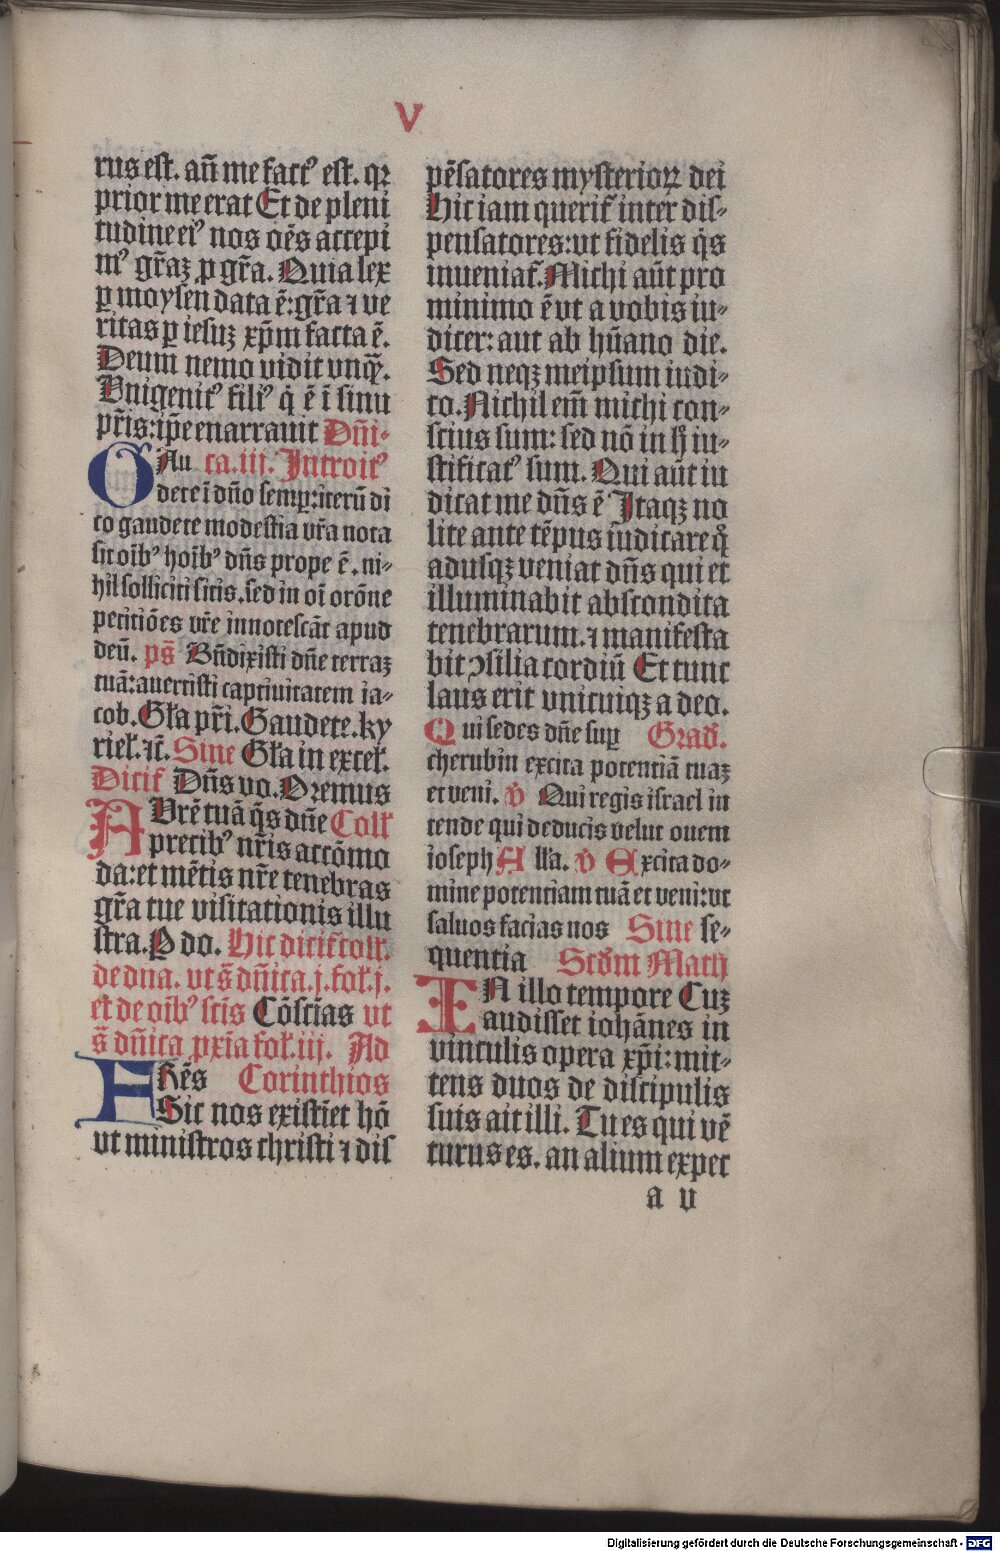 V
rus est. añ me factꝰ est. qꝛ
prior me erat Et de pleni
tudine eiꝰ nos oēs accepi
mꝰ gr̄aꝫ ꝓ gr̄a. Quia lex
ꝑ moysen data ē: gr̄a ⁊ ve
ritas ꝑ iesuꝫ xp̄m facta ē.
Deum nemo vidit vnqꝫ.
Vnigenitꝰ filiꝰ q̇ ē ī sinu
pr̄is: ip̄e enarrauit Dn̄i-
Au ca.iij. Introitꝰ
Gdete ī dn̄o semꝑ: iterū di
co gaudete modestia vr̄a nota
sit oībꝰ hoībꝰ dn̄s prope ē. ni-
hil solliciti sitis. sed in oī orōne
petitiōes vr̄e innotescāt apud
deū. pš Bn̄dixisti dn̄e terraꝫ
tuā: auertisti captiuitatem ia-
cob. Gła pr̄i. Gaudete. ky
rieł. ⁊c̄. Sine Gła in exceł.
Dicit̄ Dn̄s vo. Oremus
AVrē tuā q̄s dn̄e Coll̄
precibꝰ nr̄is accōmo
da: et mētis nr̄e tenebras
gr̄a tue visitationis illu
stra. P do. Hic dicit̄ coll̄.
de dn̄a. vt s̄ dn̄ica.j. foł.j.
et de oībꝰ sc̄is Cōsc̄ias vt
s̄ dn̄ica pxīa foł.iij. Ad
FRēs Corinthios
Sic nos existīet hō
vt ministros christi ⁊ dis
pēsatores mysterioꝝ dei
Hic iam querit̄ inter dis-
pensatores: vt fidelis q̇s
inueniat̄. Michi aūt pro
minimo ē vt a vobis iu-
dicer: aut ab hūano die.
Sed neqꝫ meipsum iudi-
co. Nichil em̄ michi con-
scius sum: sed nō in h̊ iu-
stificatꝰ sum. Qui aūt iu
dicat me dn̄s ē Itaqꝫ no
lite ante tēpus iudicare q̊
adusqꝫ veniat dn̄s qui et
illuminabit abscondita
tenebrarum. ⁊ manifesta
bit ꝯsilia cordiū Et tunc
laus erit vnicuiqꝫ a deo.
Qui sedes dn̄e suꝑ Grad̄.
cherubin excita potentiā tuaꝫ
et veni. v̄ Qui regis israel in
tende qui deducis velut ouem
ioseph Alľa. v̄ Excita do-
mine potentiam tuā et veni: vt
saluos facias nos Sine se-
quentia Scd̄m Math
IN illo tempore Cuꝫ
audisset iohānes in
vinculis opera xp̄i: mit-
tens duos de discipulis
suis ait illi. Tu es qui vē
turus es. an alium expec
a v
Digitalisierung gefördert durch die Deutsche Forschungsgemeinschaft - DFG